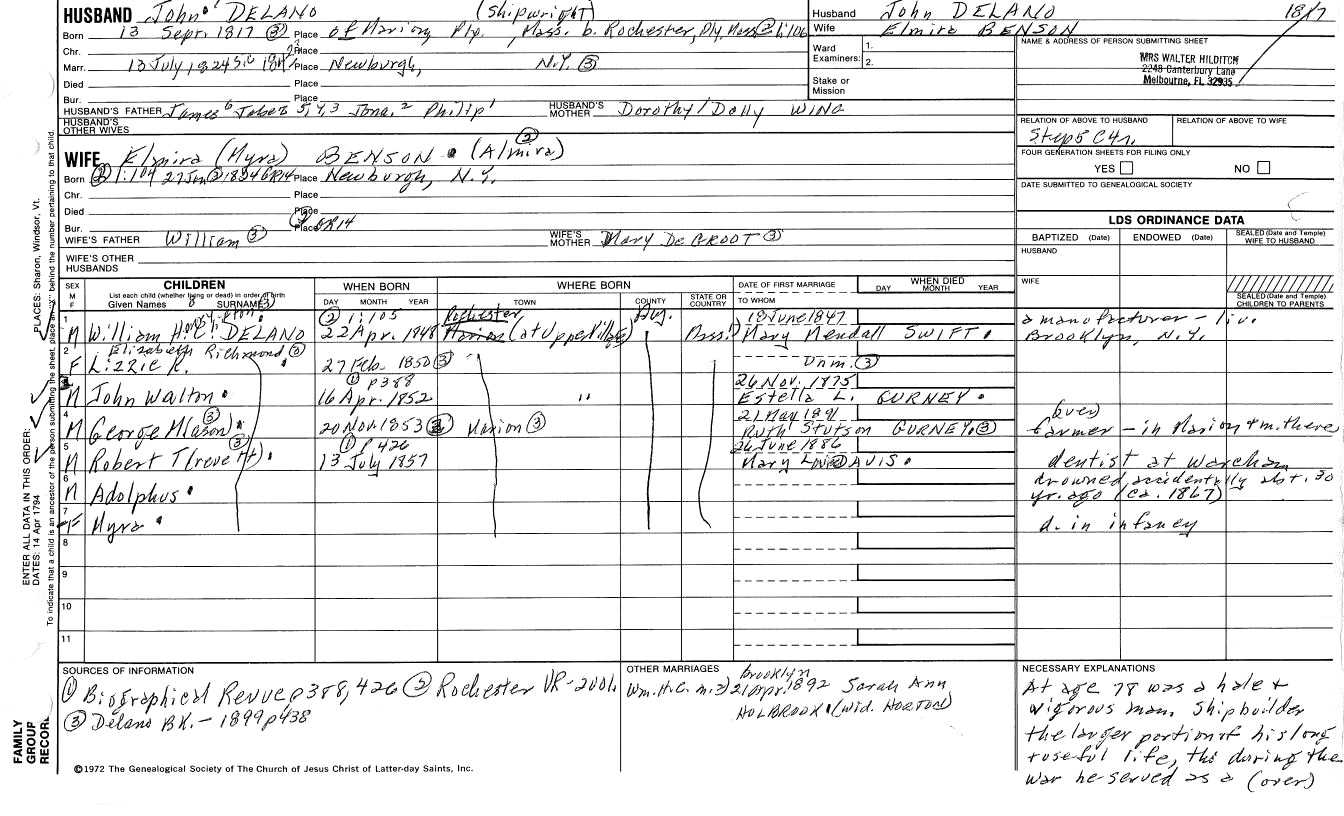 HUSBAND John DELANO (Shipwright)
Born 13 Sepr. 1817 ③ Place of Marion, Ply., Mass. b. Rochester, Ply, Mass ② 1:106
Chr. Place
Marr. 13 July 1824 Sic 1847 Place Newburgh, N.Y. ③
Died Place
Bur. Place
HUSBAND'S FATHER James 6 Jabez 5, 4, 3 Jona. 2 Philip 1
HUSBAND'S MOTHER Dorothy/Dolly WING
HUSBAND'S OTHER WIVES
WIFE Elmira (Myra) BENSON (Almira) ②
Born ② 1:104 27 Jan ③ GR14 Place Newburgh, N.Y.
Chr. Place
Died Place
Bur. Place ② GR14
WIFE'S FATHER William ③
WIFE'S MOTHER Mary DeGROOT ③
WIFE'S OTHER HUSBANDS
Husband John DELANO 1817
Wife Elmira BENSON
Ward Examiners: 1. 2.
Stake or Mission
NAME & ADDRESS OF PERSON SUBMITTING SHEET
MRS WALTER HILDITCH
2248 Canterbury Lane
Melbourne, FL 32935
RELATION OF ABOVE TO HUSBAND
RELATION OF ABOVE TO WIFE
Step 5 C4r.
FOUR GENERATION SHEETS FOR FILING ONLY
YES NO
DATE SUBMITTED TO GENEALOGICAL SOCIETY
LDS ORDINANCE DATA
BAPTIZED (Date) ENDOWED (Date) SEALED (Date and Temple) WIFE TO HUSBAND
HUSBAND
WIFE
SEALED (Date and Temple) CHILDREN TO PARENTS
SEX M F
CHILDREN
List each child (whether living or dead) in order of birth
Given Names SURNAME ③
WHEN BORN
DAY MONTH YEAR
WHERE BORN
TOWN COUNTY STATE OR COUNTRY
DATE OF FIRST MARRIAGE
TO WHOM
WHEN DIED
DAY MONTH YEAR
1 M William H. C. DELANO ② 1:105 22 Apr. 1848 Rochester Marion (at Upper Village) Ply. Mass. 18 June 1847 Mary Mendall SWIFT. a manufacturer - liv. Brooklyn, N.Y.
2 F Lizzie R. Elizabeth Richmond ③ 27 Feb. 1850 ③ Unm. ③
3 M John Walton ① p388 16 Apr. 1852 " 26 Nov. 1875 Estella L. GURNEY
4 M George M(ason) ③ 20 Nov. 1853 Marion ③ 21 May 1891 Ruth Stutson GURNEY ③ farmer - in Marion & m. there
5 M Robert T(revett) ③ ① p426 13 July 1857 26 June 1886 Mary DAVIS. dentist at Wareham
6 M Adolphus drowned accidentally abt. 30 yr. ago (ca. 1867)
7 F Myra d. in infancy
8
9
10
11
SOURCES OF INFORMATION
① Biographical Revue p388, 426 ② Rochester VR-
③ Delano BK. - 1899 p438
OTHER MARRIAGES
Wm. H.C. m. 2) Brooklyn 21 Apr. 1892 Sarah Ann
HOLBROOK (wid. HORTON)
NECESSARY EXPLANATIONS
At age 78 was a hale &
vigorous man. Shipbuilder
the larger portion of his long
& useful life, tho during the
war he served as a (over)
©1972 The Genealogical Society of The Church of Jesus Christ of Latter-day Saints, Inc.
FAMILY GROUP RECORD
ENTER ALL DATA IN THIS ORDER:
DATES: 14 Apr 1794
PLACES: Sharon, Windsor, Vt.
To indicate that a child is an ancestor of the person submitting the sheet, place an "X" behind the number pertaining to that child.